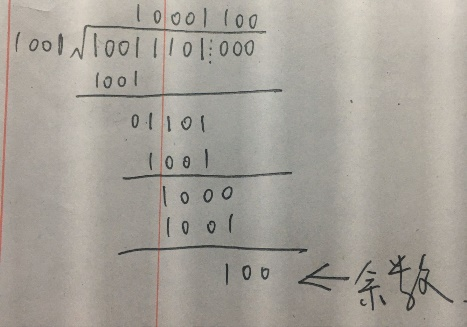 10001100
1001√10011101⋮000
1001
01101
1001
1000
1001
100 ← 余数